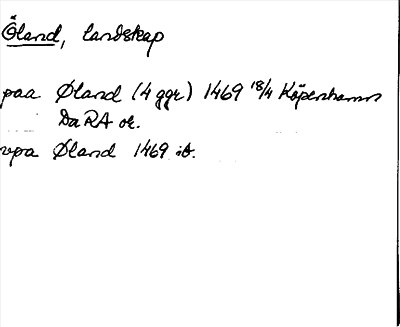 Öland, landskap
paa Øland (4 ggr) 1469 18/4 Köpenhamn
DaRA or.
vpa Øland 1469 ib.